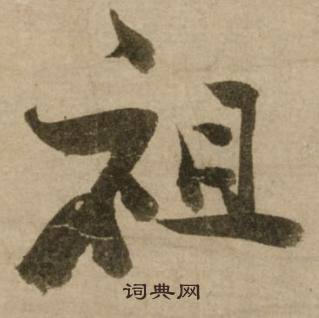 祖
词典网